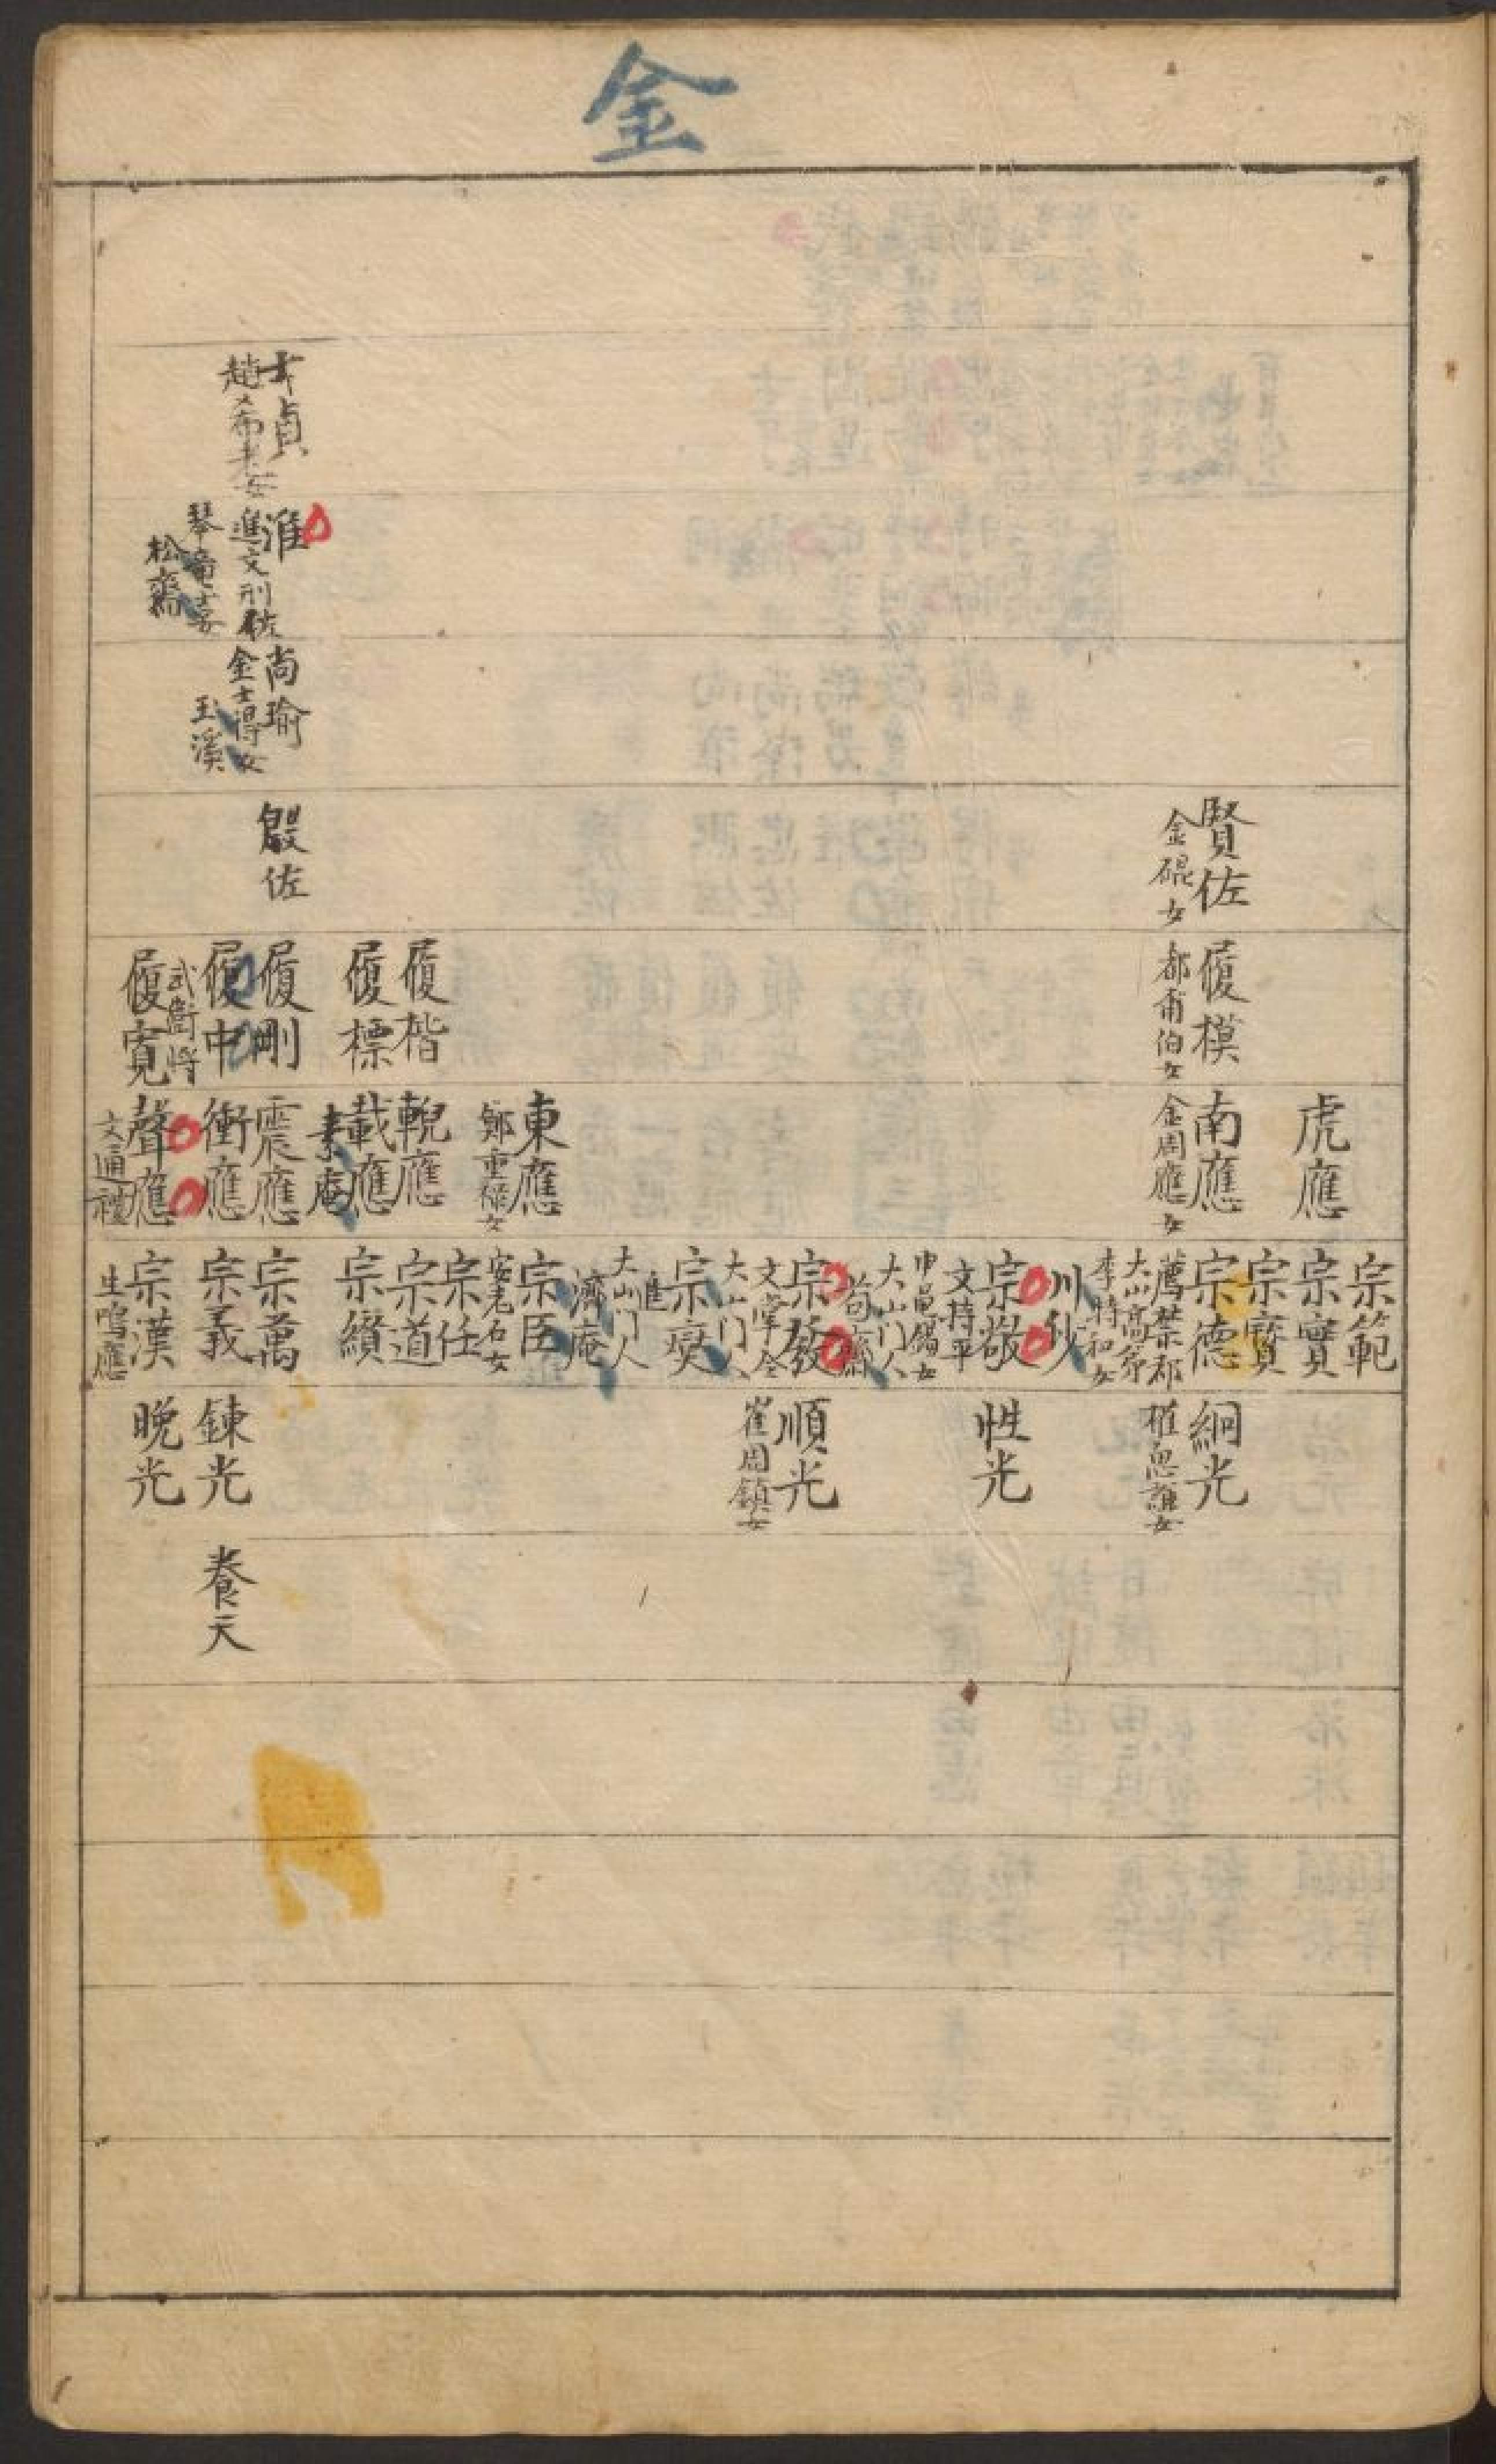 金
士貞
趙希老女
淮
進文刑佐
琴章臺
松齋
尚瑜
金士得女
玉溪
賢佐
金硍女
殷佐
履模
都爾伯女
履楷
履標
履剛
履中
武衛將
履寬
虎應
南應
金周應女
東應
鄭重祿女
輗應
載應
素庵
震應
衝應
聲應
文通禮
宗範
宗實
宗寶
宗德
薦禁郎
大山高弟
李特和女
川沙
宗敬
文持平
申昌錫女
大山门人
苟齋
宗發
文掌令
大山门人
宗燮
進
大山门人
濟庵
宗臣
安老石女
宗任
宗道
宗纘
宗萬
宗義
宗漢
生鳴應
絅光
權思誰女
性光
順光
崔周鎮女
鍊光
晚光
養天